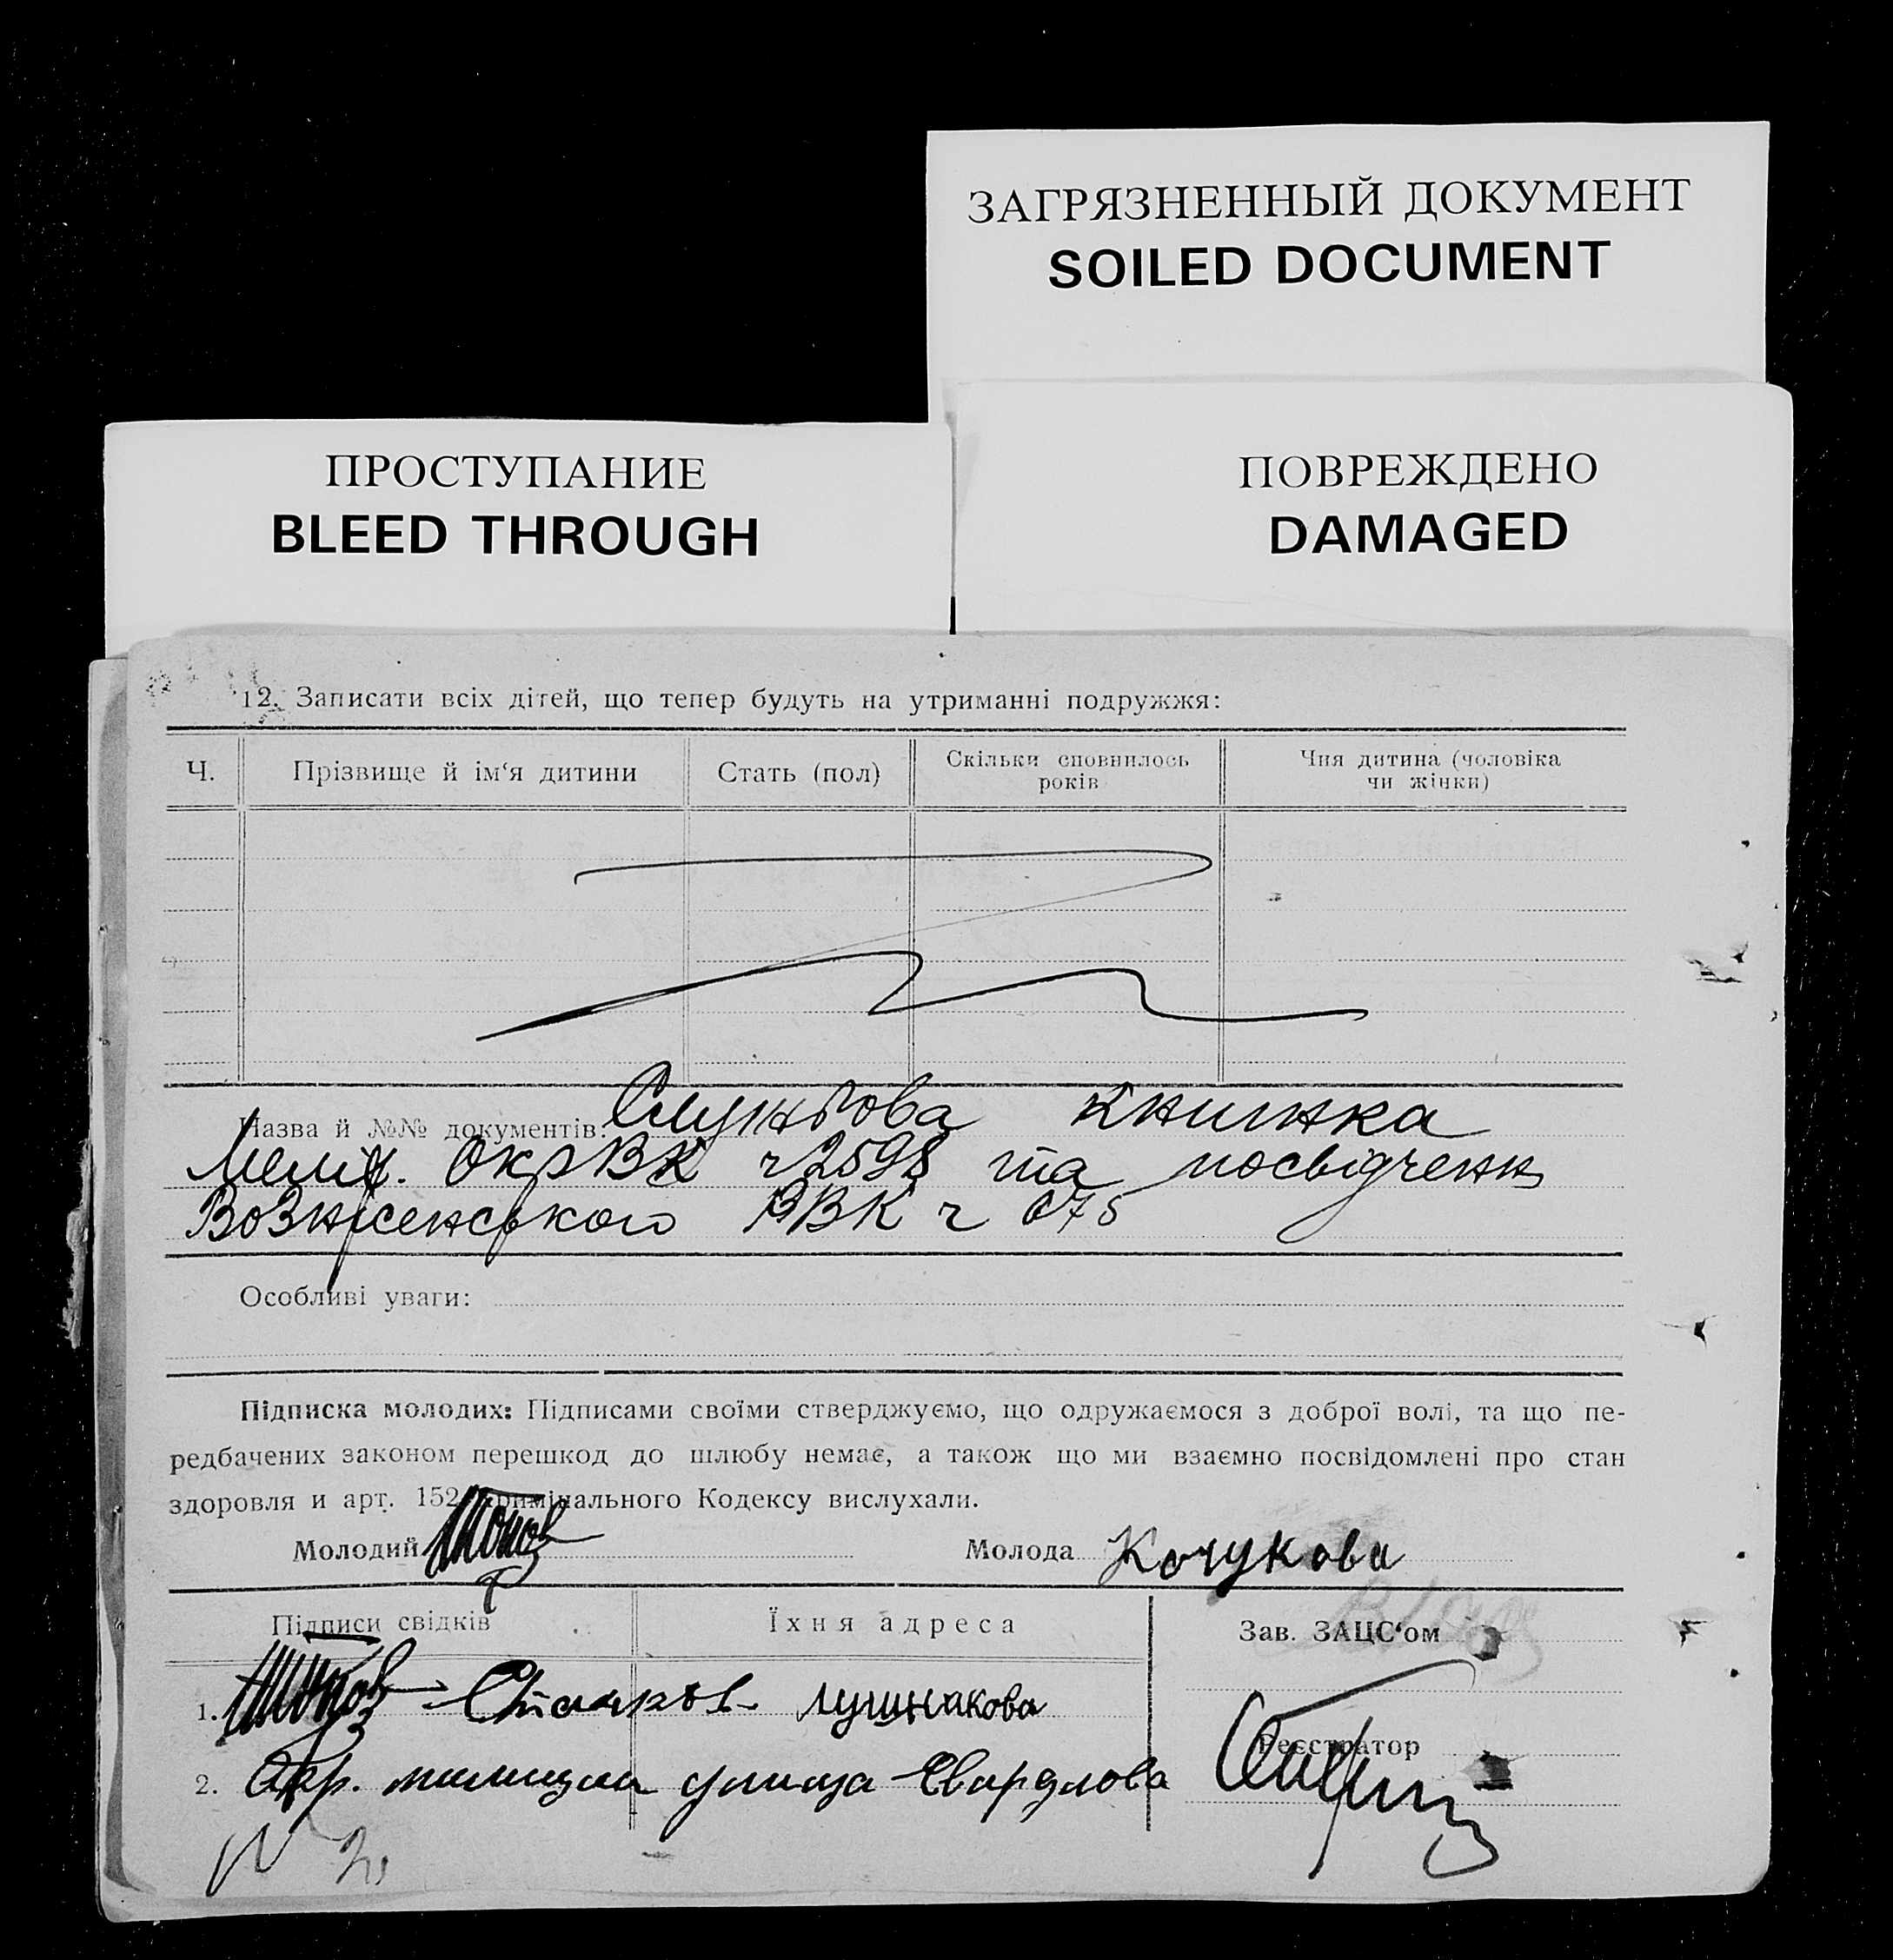 ЗАГРЯЗНЕННЫЙ ДОКУМЕНТ
SOILED DOCUMENT
ПРОСТУПАНИЕ
BLEED THROUGH
ПОВРЕЖДЕНО
DAMAGED
12. Записати всіх дітей, що тепер будуть на утриманні подружжя:
Ч.
Прізвище й ім‘я дитини
Стать (пол)
Скільки сповнилось
років
Чия дитина (чоловіка
чи жінки)
Назва й №№ документів: Службова книжка
Меліт. ОкрВК ч 2598 та посвідченн
Вознесенського РВК ч 675
Особливі уваги:
Підписка молодих: Підписами своїми стверджуємо, що одружаємося з доброї волі, та що пе-
редбачених законом перешкод до шлюбу немає, а також що ми взаємно посвідомлені про стан
здоровля и арт. 152 Кримінального Кодексу вислухали.
Молодий
Молода Кочукова
Підписи свідків
Їхня адреса
Зав. ЗАЦС‘ом
1. Лушнакова
2. Окр. милиция улица Свардлова
Реєстратор